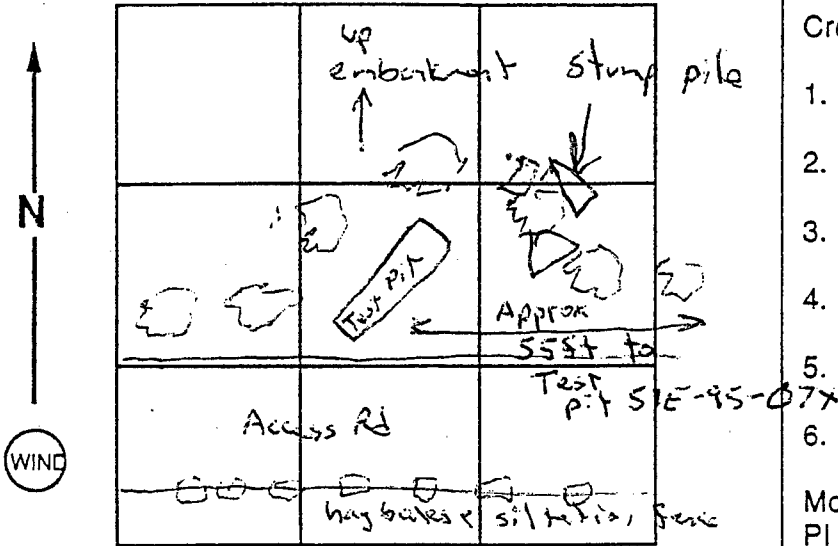 up
embankment
Stump pile
N
Test Pit
Approx
55ft to
Test
pit 51E-95-07X
Access Rd
WIND
hay bales & siltation fence
Cr
1.
2.
3.
4.
5.
6.
Mo
Pl